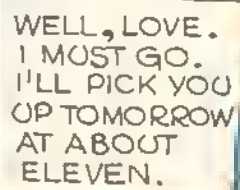 WELL, LOVE.
I MUST GO.
I'LL PICK YOU
UP TOMORROW
AT ABOUT
ELEVEN.